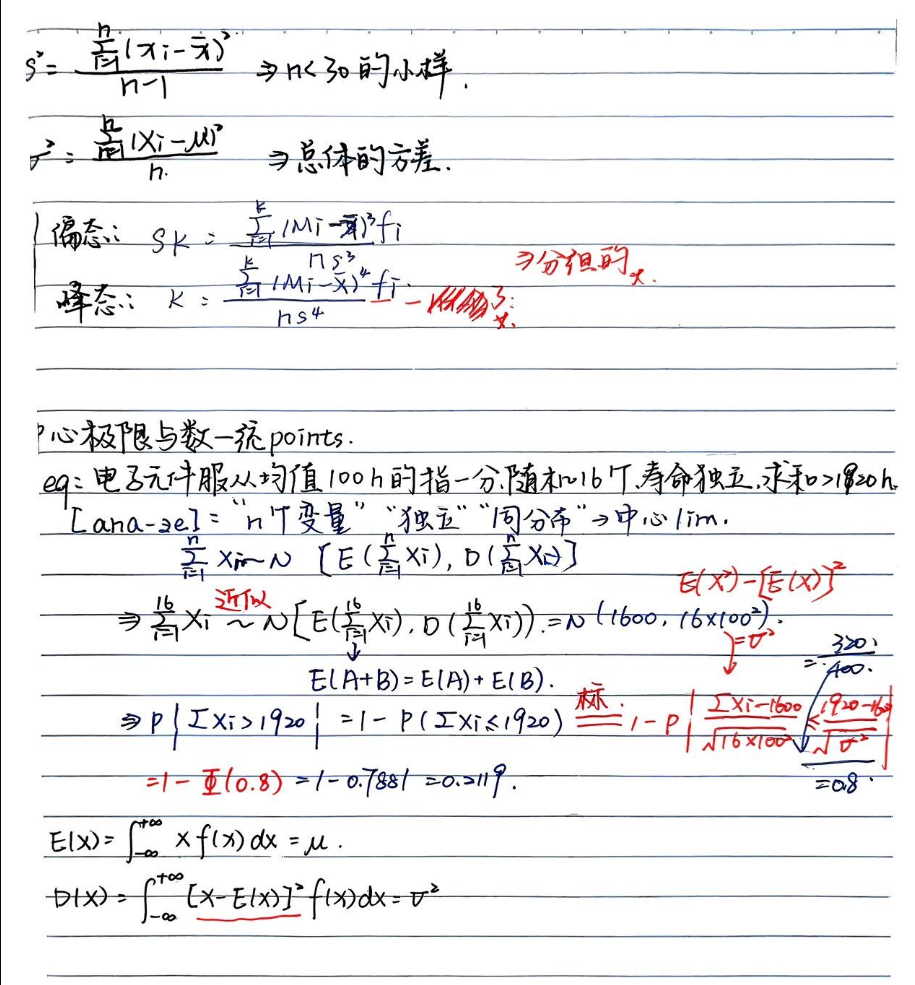 s² = \frac{\sum_{i=1}^{n}(xi-x̄)²}{n-1} ⇒ n<30的小样.
σ² = \frac{\sum_{i=1}^{n}(Xi-μ)²}{n.} ⇒ 总体的方差.
偏态: SK = \frac{\sum_{i=1}^{k}(Mi-x̄)³fi}{ns³} ⇒分组的
峰态: K = \frac{\sum_{i=1}^{k}(Mi-x̄)⁴fi}{ns⁴}
心极限与数一统 points.
eg: 电子元件服从均值100h的指一分.随机16个.寿命独立.求和>1920h.
[ana-ze]= "n个变量" "独立" "同分布"→中心lim.
\sum_{i=1}^{n} Xi~N [E(\sum_{i=1}^{n}Xi), D(\sum_{i=1}^{n}Xi)]
E(X²)-[E(X)]²
⇒ \sum_{i=1}^{16} Xi 近似 ~ N[E(\sum_{i=1}^{16}Xi), D(\sum_{i=1}^{16}Xi)).=N(1600, 16×100²).
=σ² = \frac{320}{400.}
E(A+B)=E(A)+E(B).
⇒P{ΣXi>1920} = 1-P(ΣXi≤1920) 标. 1-P{\frac{ΣXi-1600}{\sqrt{16×100²}} ≤ \frac{1920-1600}{\sqrt{σ²}}}
=1-Φ(0.8) =1-0.7881 =0.2119. =0.8.
E(X)= \int_{-∞}^{+∞} x f(x) dx = μ.
D(X)= \int_{-∞}^{+∞} [X-E(X)]² f(x)dx = σ²